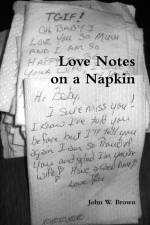 TGIF!
Oh Baby I
Love you so Much
and I am so
Happy
Your Wife
Love Notes
on a Napkin
Hi Baby,
I sure miss you!
I know I've told you
before but I'll tell you
again I am so proud of
you and glad I'm your
wife! Have a good day!
Love You
John W. Brown